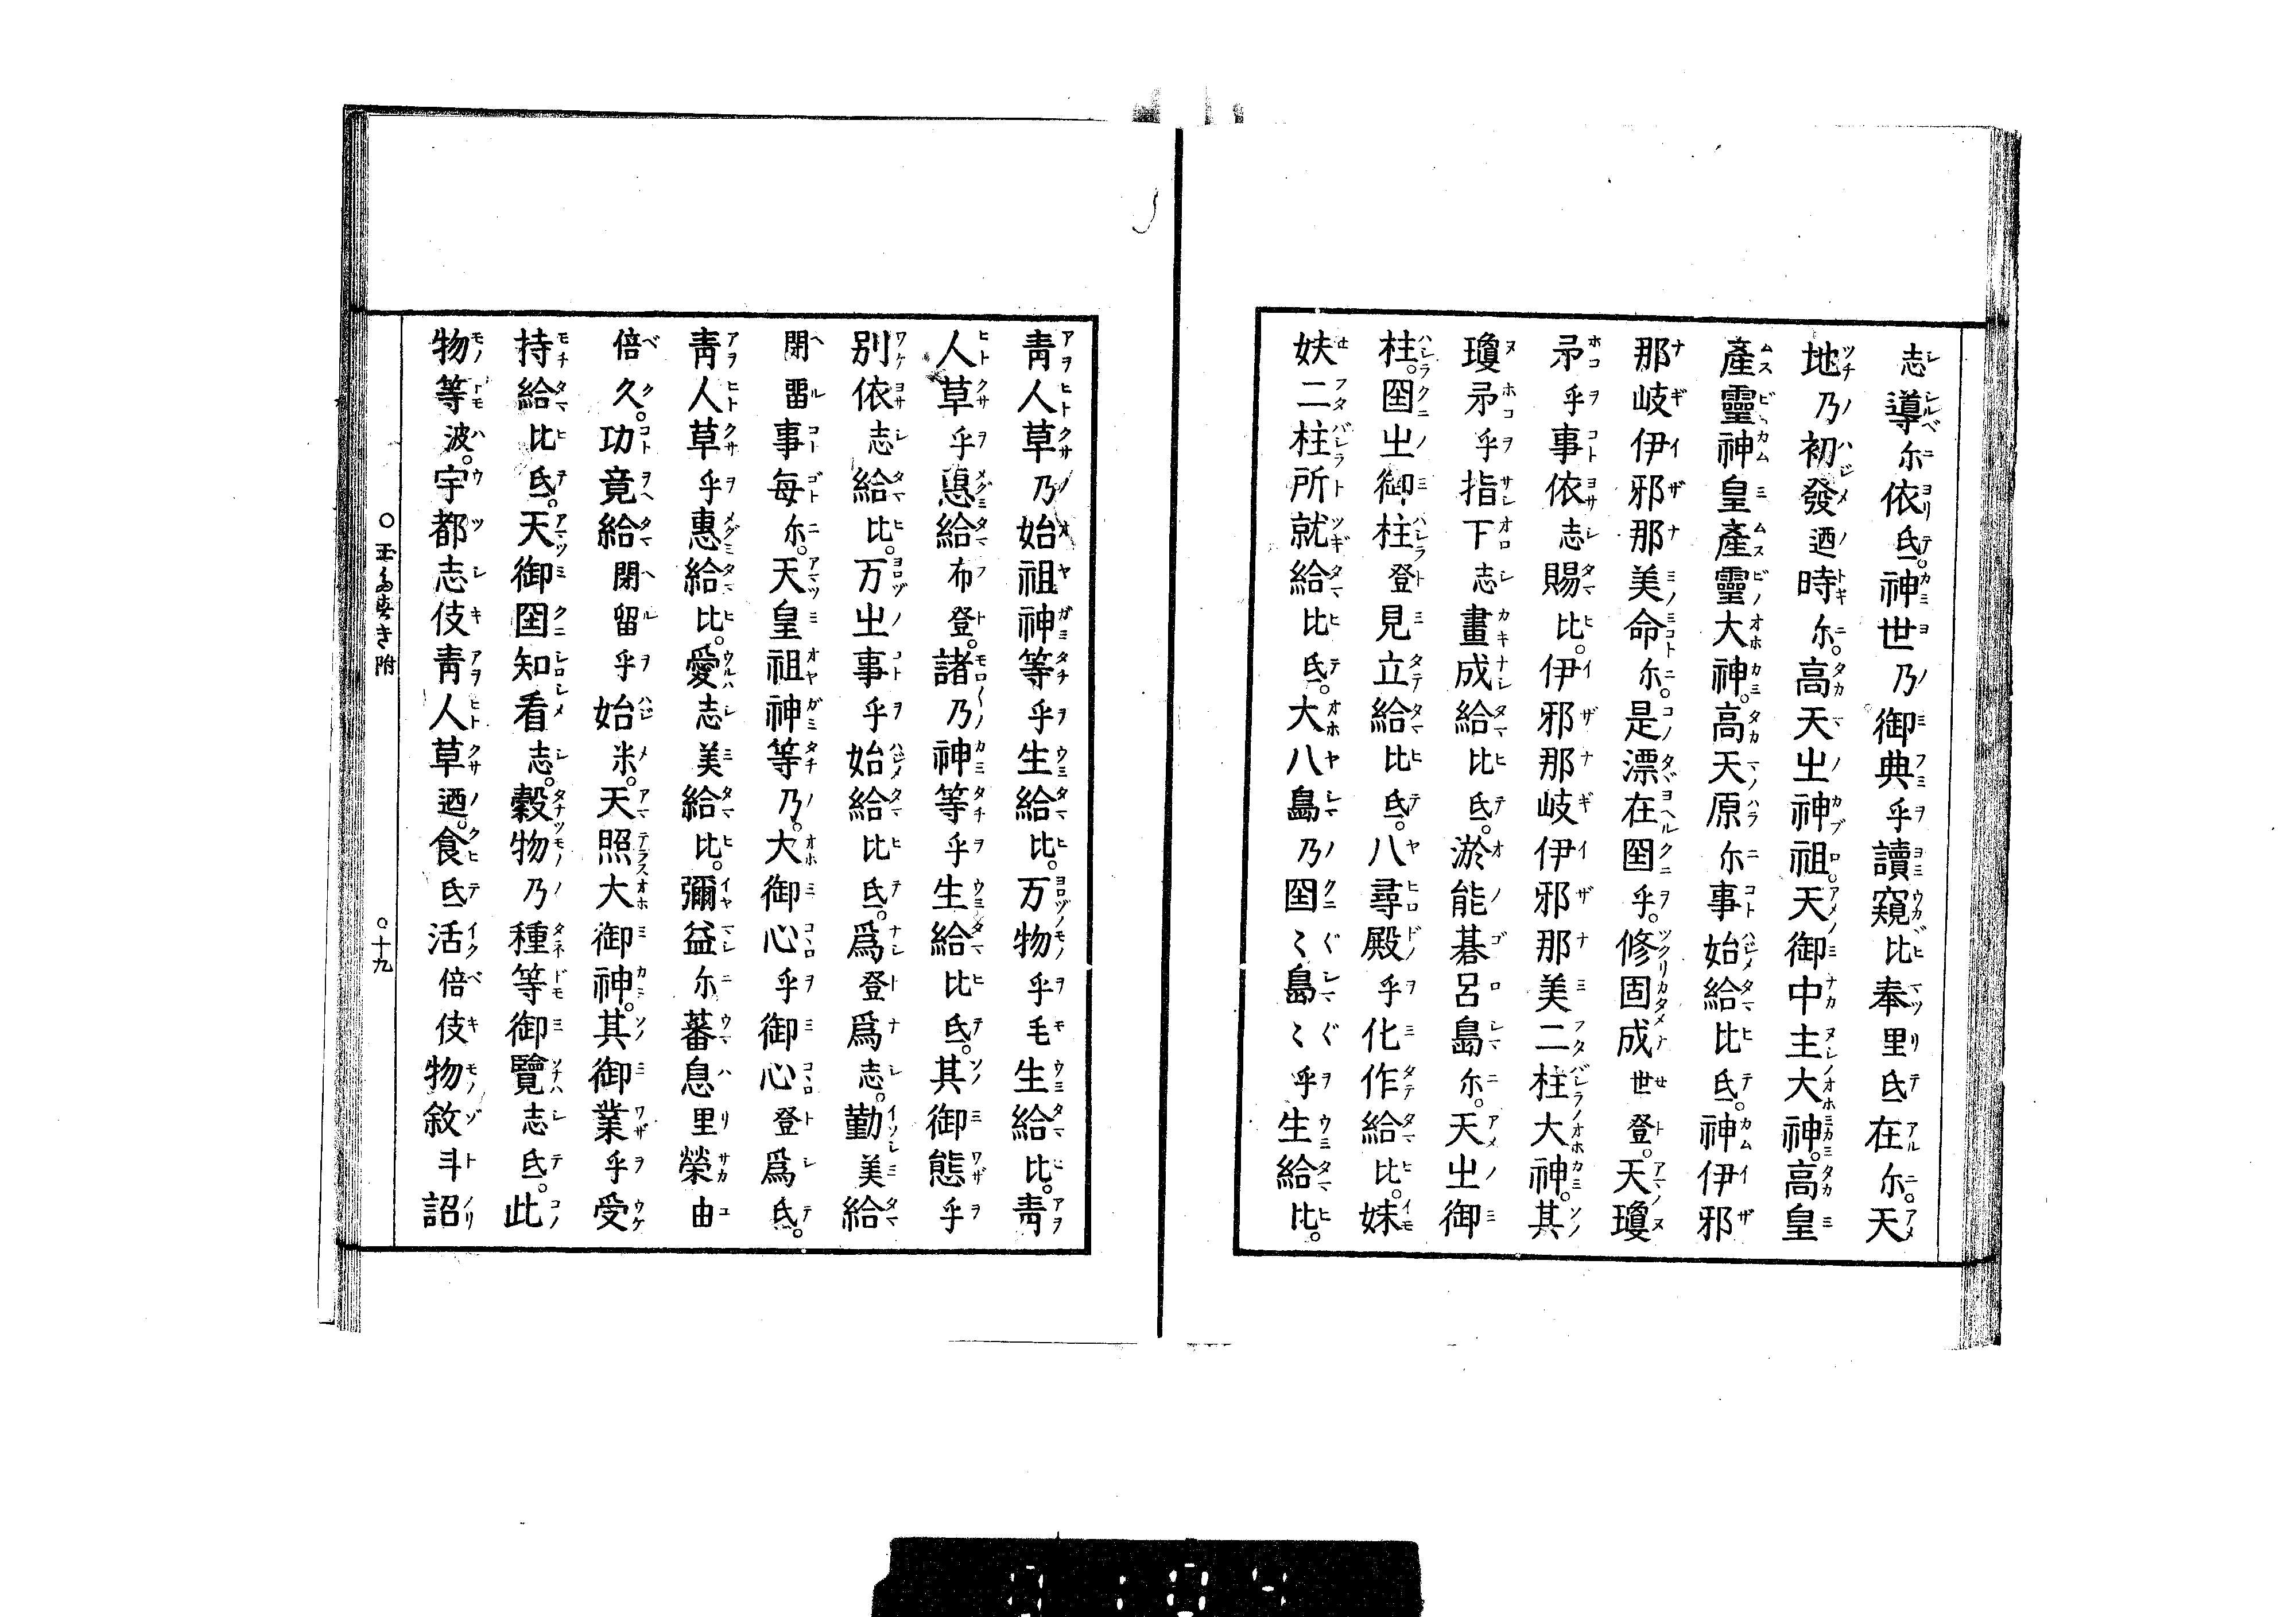 志導尓依氐。神世乃御典乎讀窺比奉里氐在尓。天
地乃初發迺時尓。高天㞢神祖。天御中主大神。高皇
產靈神皇產靈大神。高天原尓事始給比氐。神伊邪
那岐伊邪那美命尓。是漂在圀乎。修固成世登。天瓊
矛乎事依志賜比。伊邪那岐伊邪那美二柱大神。其
瓊矛乎指下志畫成給比氐。淤能碁呂嶋尓。天㞢御
柱。圀㞢御柱登見立給比氐。八尋殿乎化作給比。妹
妋二柱所就給比氐。大八嶋乃圀〻嶋〻乎生給比。
靑人草乃始祖神等乎生給比。万物乎毛生給比。靑
人草乎惠給布登。諸乃神等乎生給比氐。其御態乎
別依志給比。万㞢事乎始給比氐。爲登爲志。勤美給
閉畱事每尓。天皇祖神等乃。大御心乎御心登爲氐。
靑人草乎惠給比。愛志美給比。彌益尓蕃息里榮由
倍久。功竟給閉留乎始米。天照大御神。其御業乎受
持給比氐。天御圀知看志。穀物乃種等御覽志氐。此
物等波。宇都志伎靑人草迺。食氐活倍伎物敘斗詔
○玉多すき附 ○十九